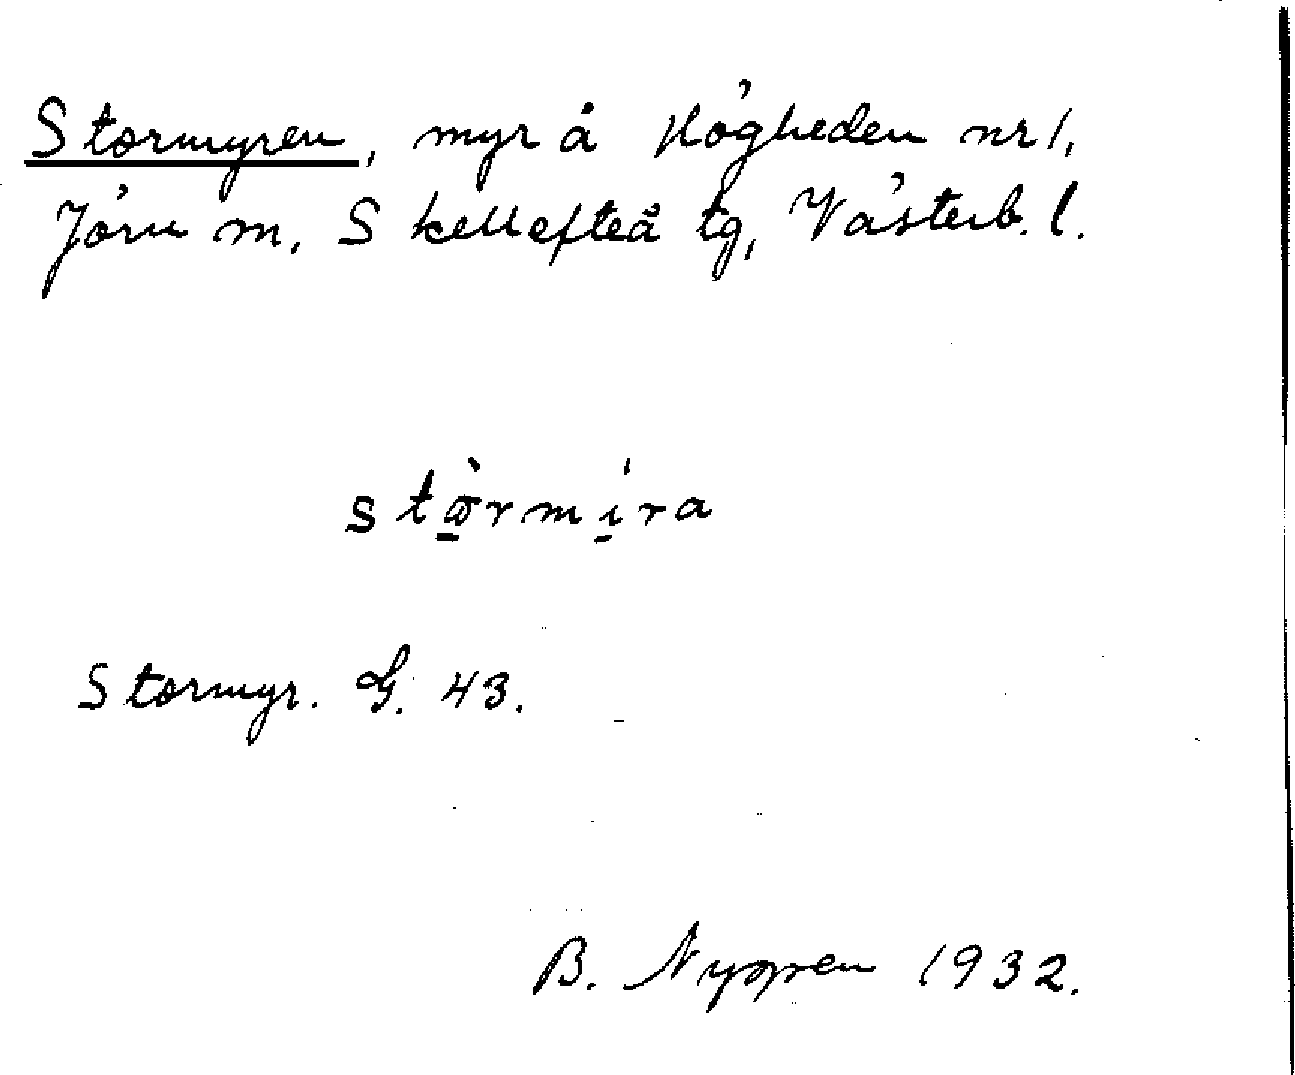 Stormyren, myr å Högheden nr 1,
Jörn m, Skellefteå tg, Västerb. l.
stòrmíra
Stormyr. G. 43.
B. Nygren 1932.